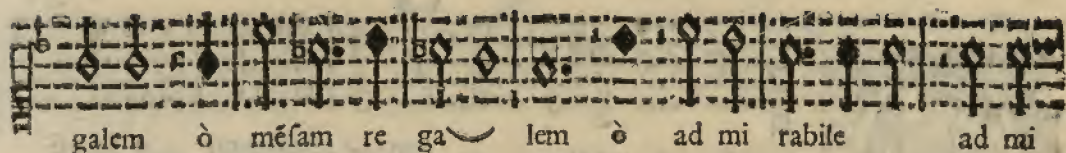 galem ò mẽſam re ga lem ò ad mi rabile ad mi